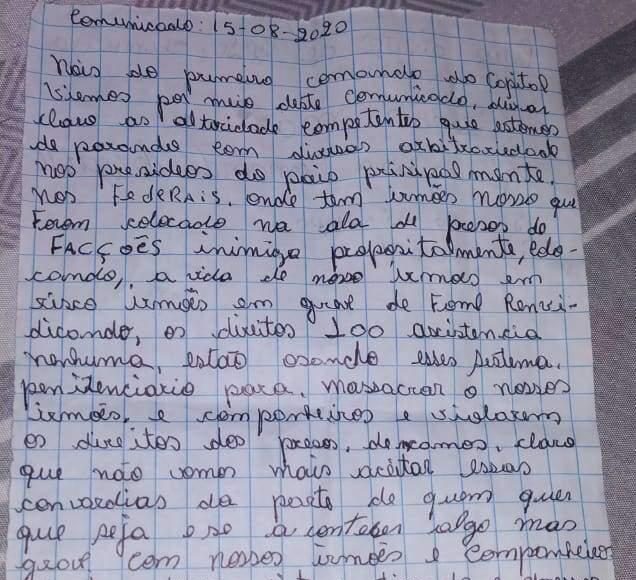 Comunicado: 15-08-2020
Nois do primeiro comando do Capital
Viemos por meio deste comunicado, dixar
claro as altoricidade competentes que estamos
de parando com diversas arbitrariedade
nos presideos do pais prisipalmente.
nos FedeRAis. onde tem irmões nosso que
Forom colocado na ala de presos de
FACÇOÊS inimiga propositalmente, colo-
cando,. a vida de nosso irmões em
risco irmões em greve de Fome Renvi-
dicando, os direitos 100 axistencia
nenhuma, estão osando esses sistema.
penidenciario para. massacrar o nossos
irmões. e componheiros e violarem
os direitos dos presos. dexamos. claro
que não vamos mais aceitar essas
convardias da parte de quem quer
que seja e se a conteser algo mas
grave com nossos irmões e componheiros